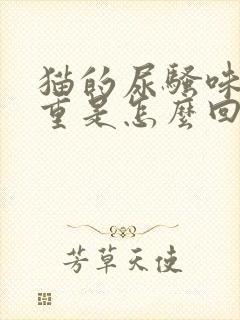 猫的尿骚味
重是怎麼回
芳草天使